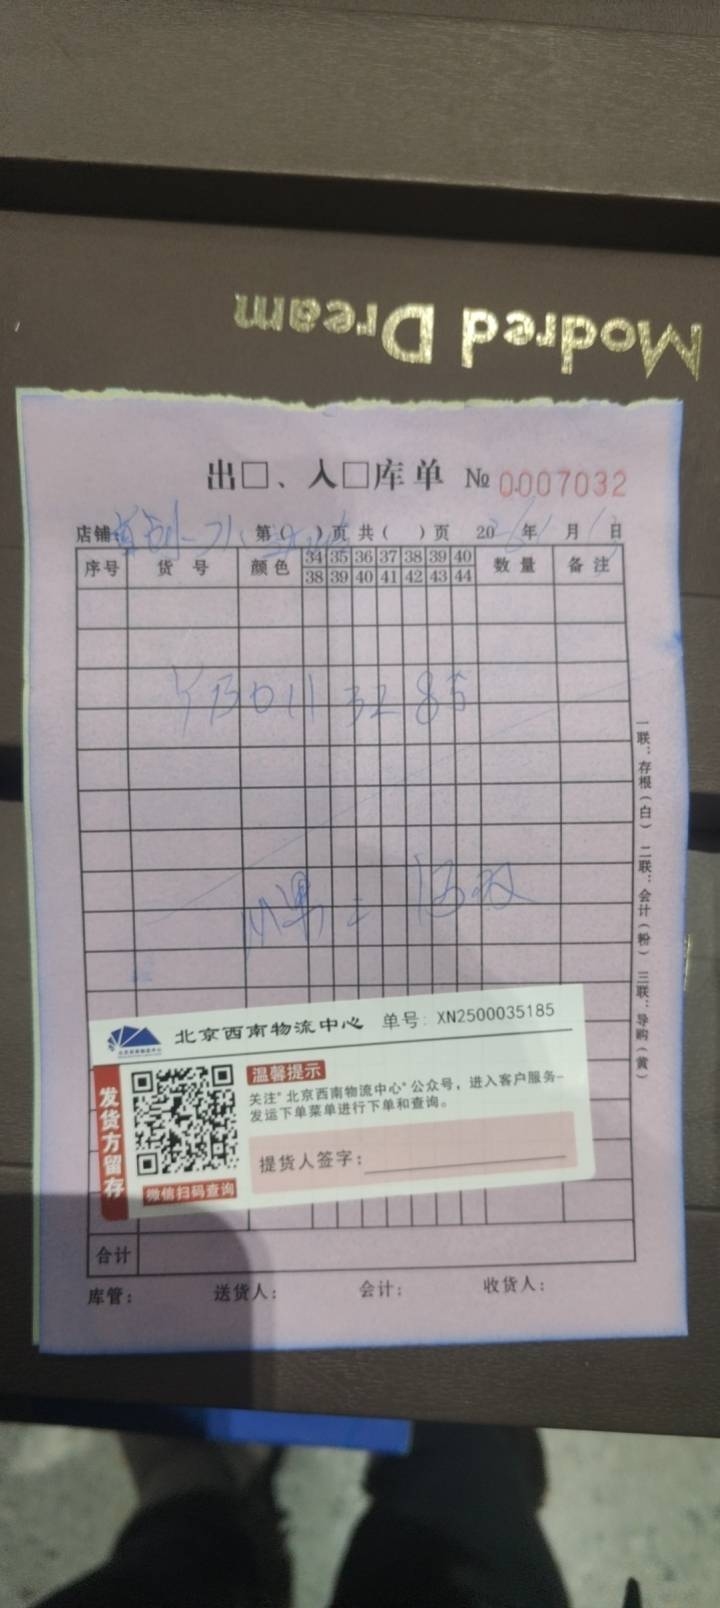 Modred Dream
出□、入□库单 № 0007032
店铺: 第( )页 共( )页 20 年 月 日
序号 货号 颜色 34 35 36 37 38 39 40 数量 备注
38 39 40 41 42 43 44
YB011 3286
一联:存根(白) 二联:会计(粉) 三联:导购(黄)
北京西南物流中心 单号: XN2500035185
发货方留存
温馨提示
关注"北京西南物流中心"公众号,进入客户服务-
发运下单菜单进行下单和查询。
提货人签字:
微信扫码查询
合计
库管: 送货人: 会计: 收货人: